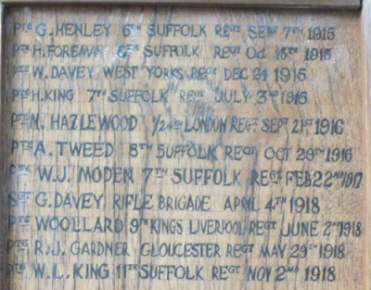 PTE G. HENLEY 6TH SUFFOLK REGT SEPT 7TH 1915
PTE H. FOREMAN 8TH SUFFOLK REGT OCT 15TH 1915
PTE W. DAVEY WEST YORKS REGT DEC 21 1915
PTE H. KING 7TH SUFFOLK REGT JULY 3RD 1916
PTE N. HAZLEWOOD 1/24TH LONDON REGT SEPT 21ST 1916
PTE A. TWEED 8TH SUFFOLK REGT OCT 29TH 1916
PTE W.J. MODEN 7TH SUFFOLK REGT FEB 22ND 1917
SGT G. DAVEY RIFLE BRIGADE APRIL 4TH 1918
PTE WOOLLARD 9TH KINGS LIVERPOOL REGT JUNE 2ND 1918
PTE R.J. GARDNER GLOUCESTER REGT MAY 29TH 1918
PTE W.L. KING 11TH SUFFOLK REGT NOV 2ND 1918